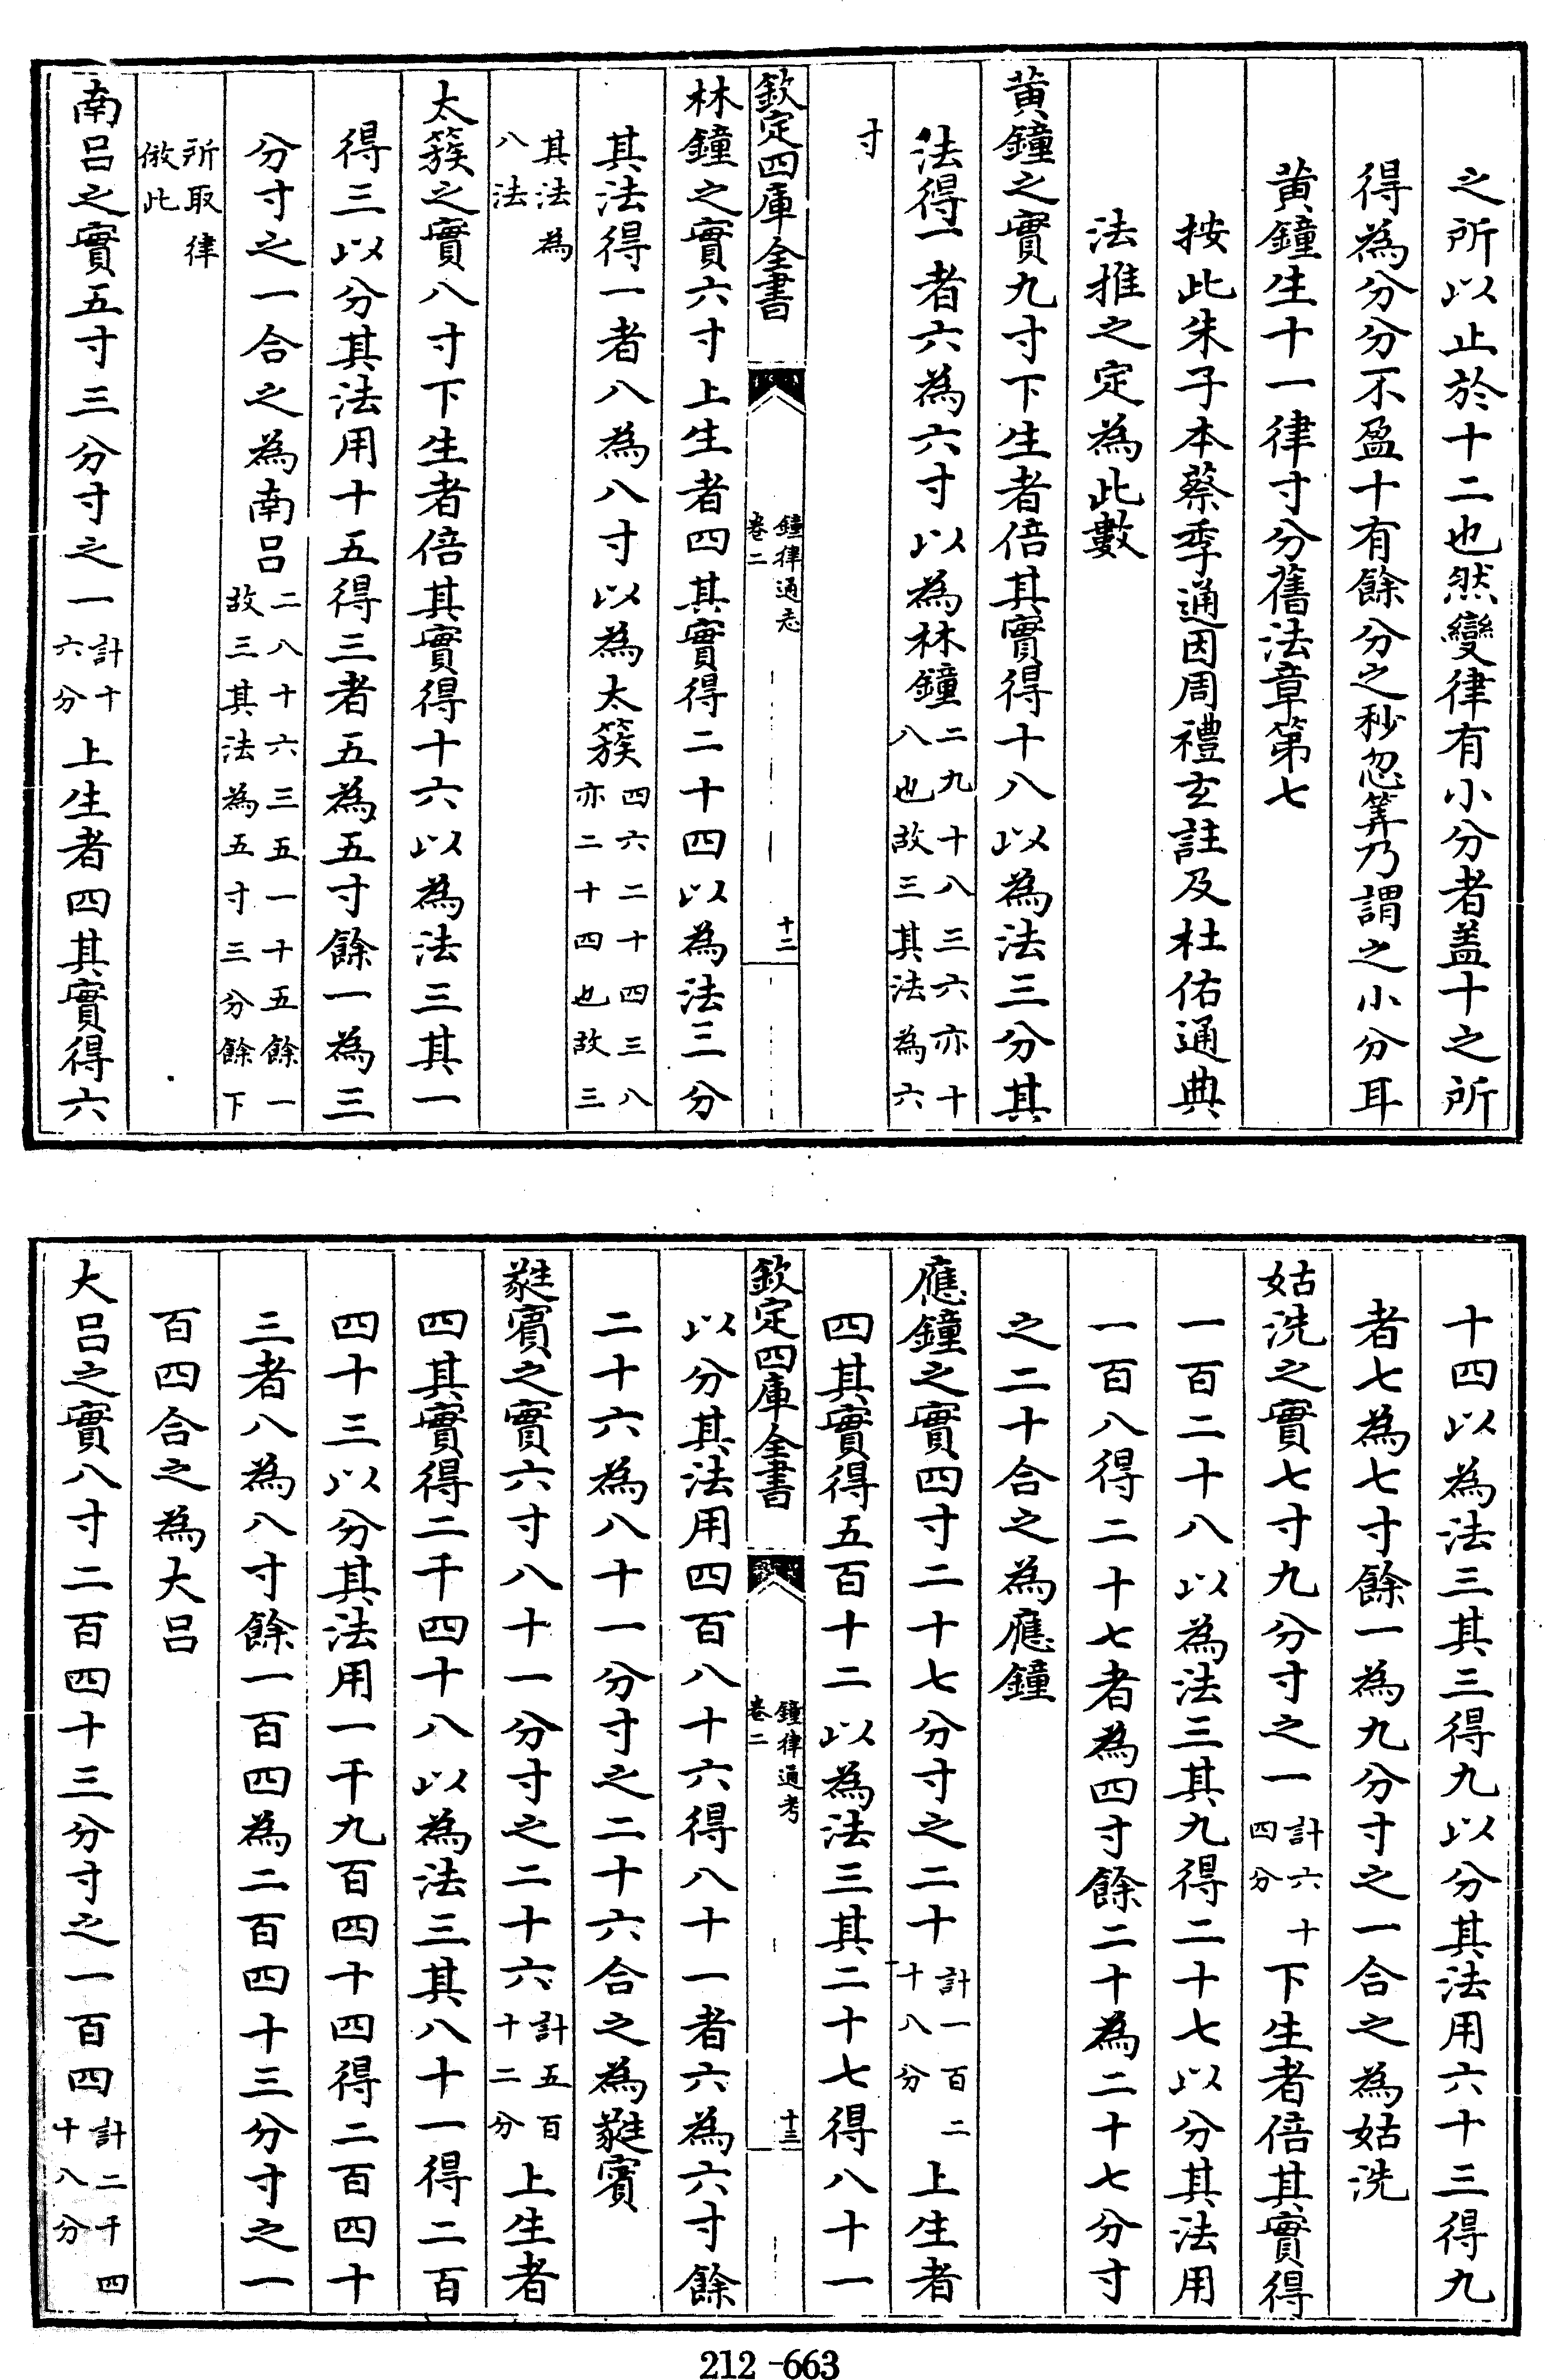 之所以止於十二也然變律有小分者盖十之所
得為分分不盈十有餘分之秒忽筭乃謂之小分耳
黃鐘生十一律寸分舊法章第七
按此朱子本蔡季通因周禮玄註及杜佑通典
法推之定為此數
黃鐘之實九寸下生者倍其實得十八以為法三分其
法得一者六為六寸以為林鐘二九十八三六亦十八也故三其法為六
寸
欽定四庫全書
鐘律通志
卷二
十二
林鐘之實六寸上生者四其實得二十四以為法三分
其法得一者八為八寸以為太簇四六二十四三八亦二十四也故三
其法為八法
太簇之實八寸下生者倍其實得十六以為法三其一
得三以分其法用十五得三者五為五寸餘一為三
分寸之一合之為南呂二八十六三五一十五餘一故三其法為五寸三分餘下
所取律倣此
南呂之實五寸三分寸之一計十六分上生者四其實得六
十四以為法三其三得九以分其法用六十三得九
者七為七寸餘一為九分寸之一合之為姑洗
姑洗之實七寸九分寸之一計六十四分下生者倍其實得
一百二十八以為法三其九得二十七以分其法用
一百八得二十七者為四寸餘二十為二十七分寸
之二十合之為應鐘
應鐘之實四寸二十七分寸之二十計一百二十八分上生者
四其實得五百十二以為法三其二十七得八十一
欽定四庫全書
鐘律通考
卷二
十三
以分其法用四百八十六得八十一者六為六寸餘
二十六為八十一分寸之二十六合之為蕤賓
蕤賓之實六寸八十一分寸之二十六計五百十二分上生者
四其實得二千四十八以為法三其八十一得二百
四十三以分其法用一千九百四十四得二百四十
三者八為八寸餘一百四為二百四十三分寸之一
百四合之為大呂
大呂之實八寸二百四十三分寸之一百四計二千四十八分
212-663